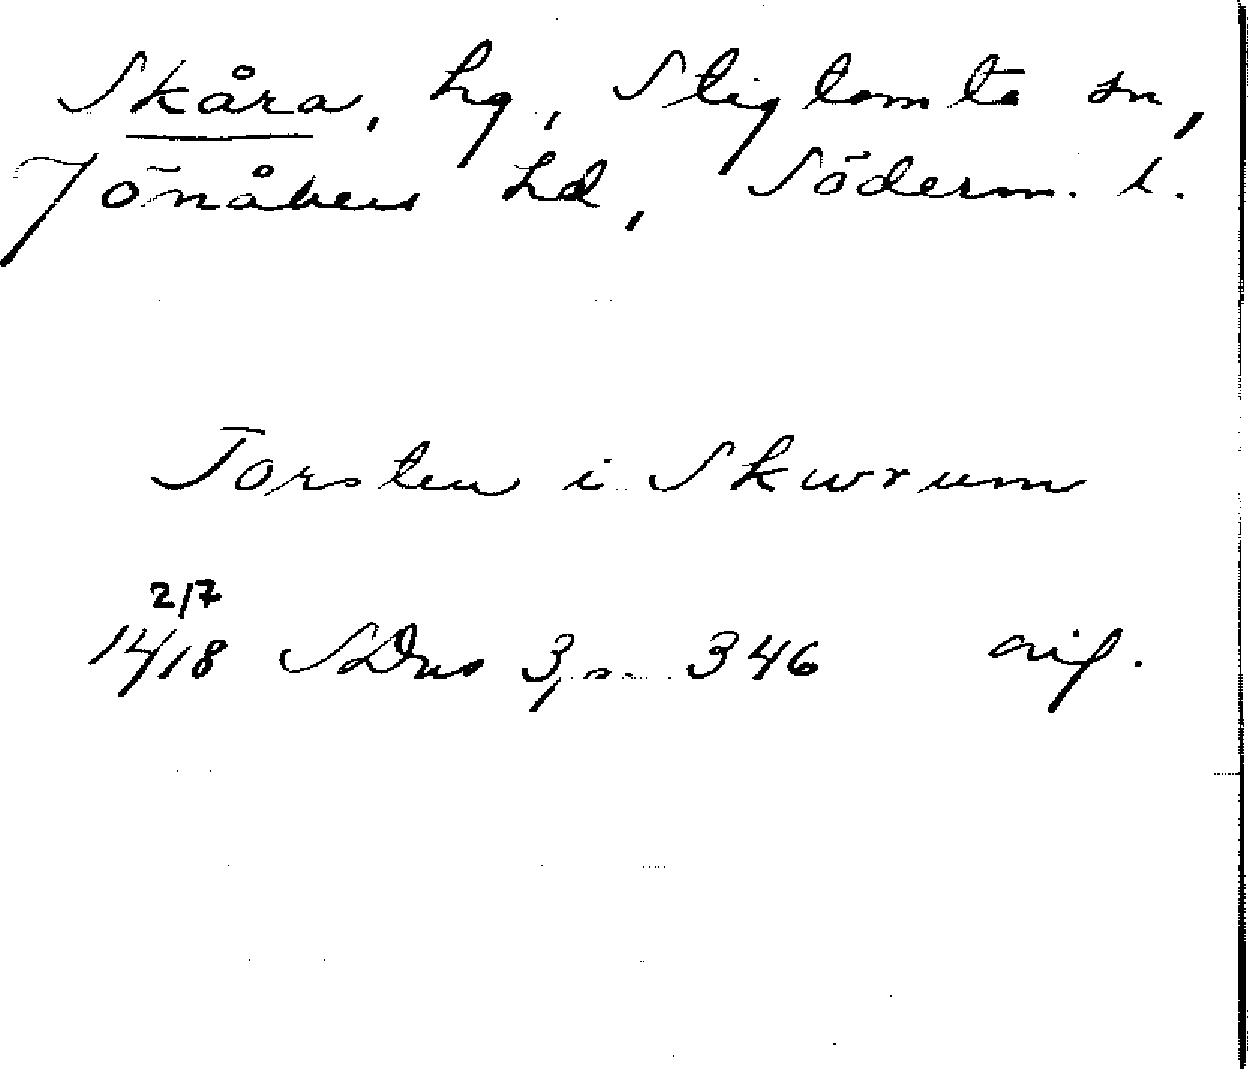 Skåra, hg, Stigtomta sn,
Jönåkers hd, Söderm. l.
Torsten i Skwrum
2/7
1418 SDns 3, s. 346 avif.